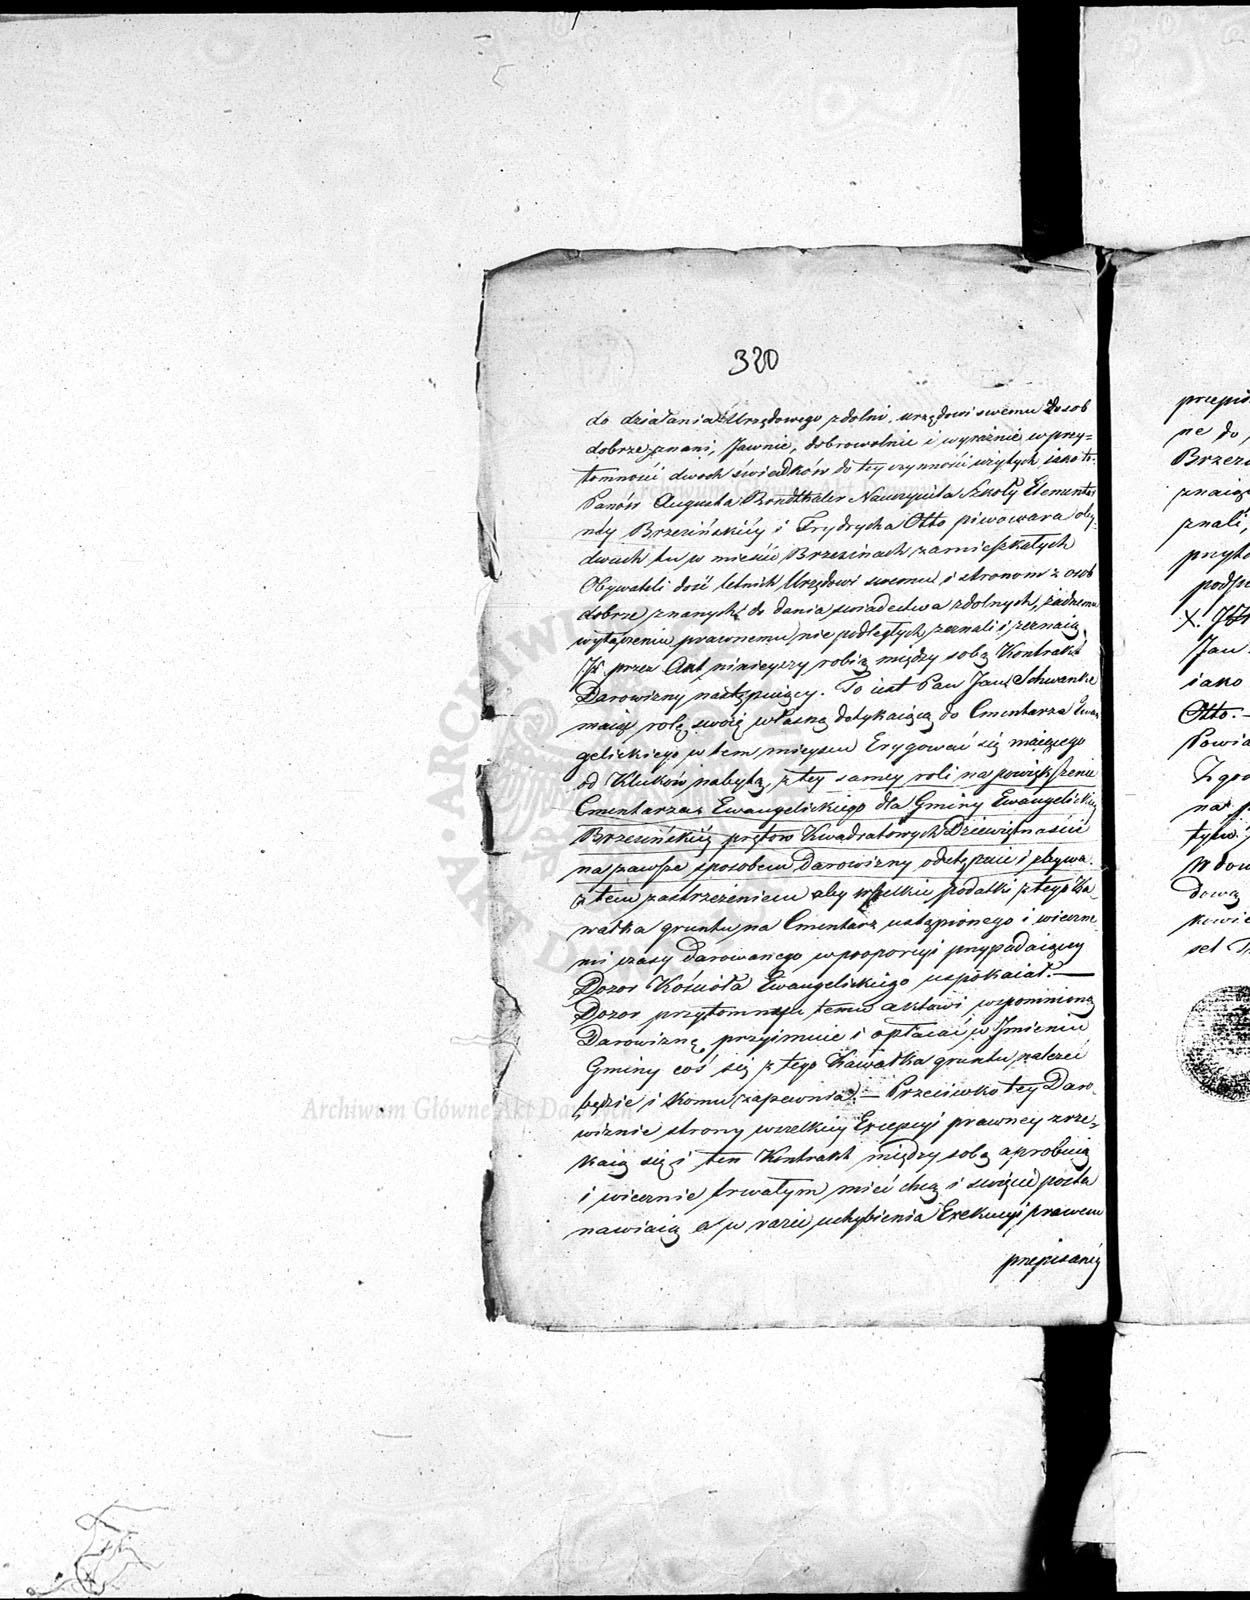 320
do działania Urzędowego zdolni, urzędowi swemu z osob
dobrze znani, Jawnie, dobrowolnie i wyraźnie w przy=
tomności dwoch świadków do tey czynności użytych iako to:
Panów Augusta Rondthaler Nauczyciela Szkoły Elementar
ney Brzezińskiey i Frydrycha Otto piwowara oby-
dwach tu w mieście Brzezinach zamieszkałych
Obywateli dość letnich Urzędowi swemu i stronom z osob
dobrze znanych, do dania świadectwa zdolnych, żadnemu
wyłączeniu prawnemu nie podległych, zeznali i zeznaią,
Iż przez Akt ninieyszy robią między sobą Kontrakt
Darowizny następuiący. To iest Pan Jan Schwanke
maiąc rolę swoią własną dotykaiącą do Cmentarza Ewan
gelickiego w tem mieyscu Erygować się maiącego
od Kluków nabytą, z tey samey roli na powiększenie
Cmentarza Ewangelickiego dla Gminy Ewangelickiey
Brzezińskiéy prętow Kwadratowych Dziewiętnaście
na zawsze sposobem Darowizny odstępuie i zbywa.
z tem zastrzeżeniem aby wszelkie podatki z tego Ka-
wałka gruntu na Cmentarz ustąpionego i wieczne
mi czasy darowanego w proporcyi przypadaiącey
Dozor Kościoła Ewangelickiego uspokaiał.—
Dozor przytomny temu aktowi wspomnioną
Darowiznę przyimuie i opłacać w Imieniu
Gminy coś się z tego Kawałka gruntu należeć
będzie i komu zapewnia.— Przeciwko tey Daro-
wiznie strony wszelkiey Excepcyi prawney zrze-
kaią się i ten Kontrakt między sobą aprobuią
i wiecznie trwałym mieć chcą i święcie posta
nawiaią a w razie uchybienia Exekucyi prawem
przepisanéy
przepis
ne do
Brzez
znaią
znali,
przyto
podpi
Jan
iako
Otto.—
Powia
Zgod
na p
tyłu
Wdow
Dową